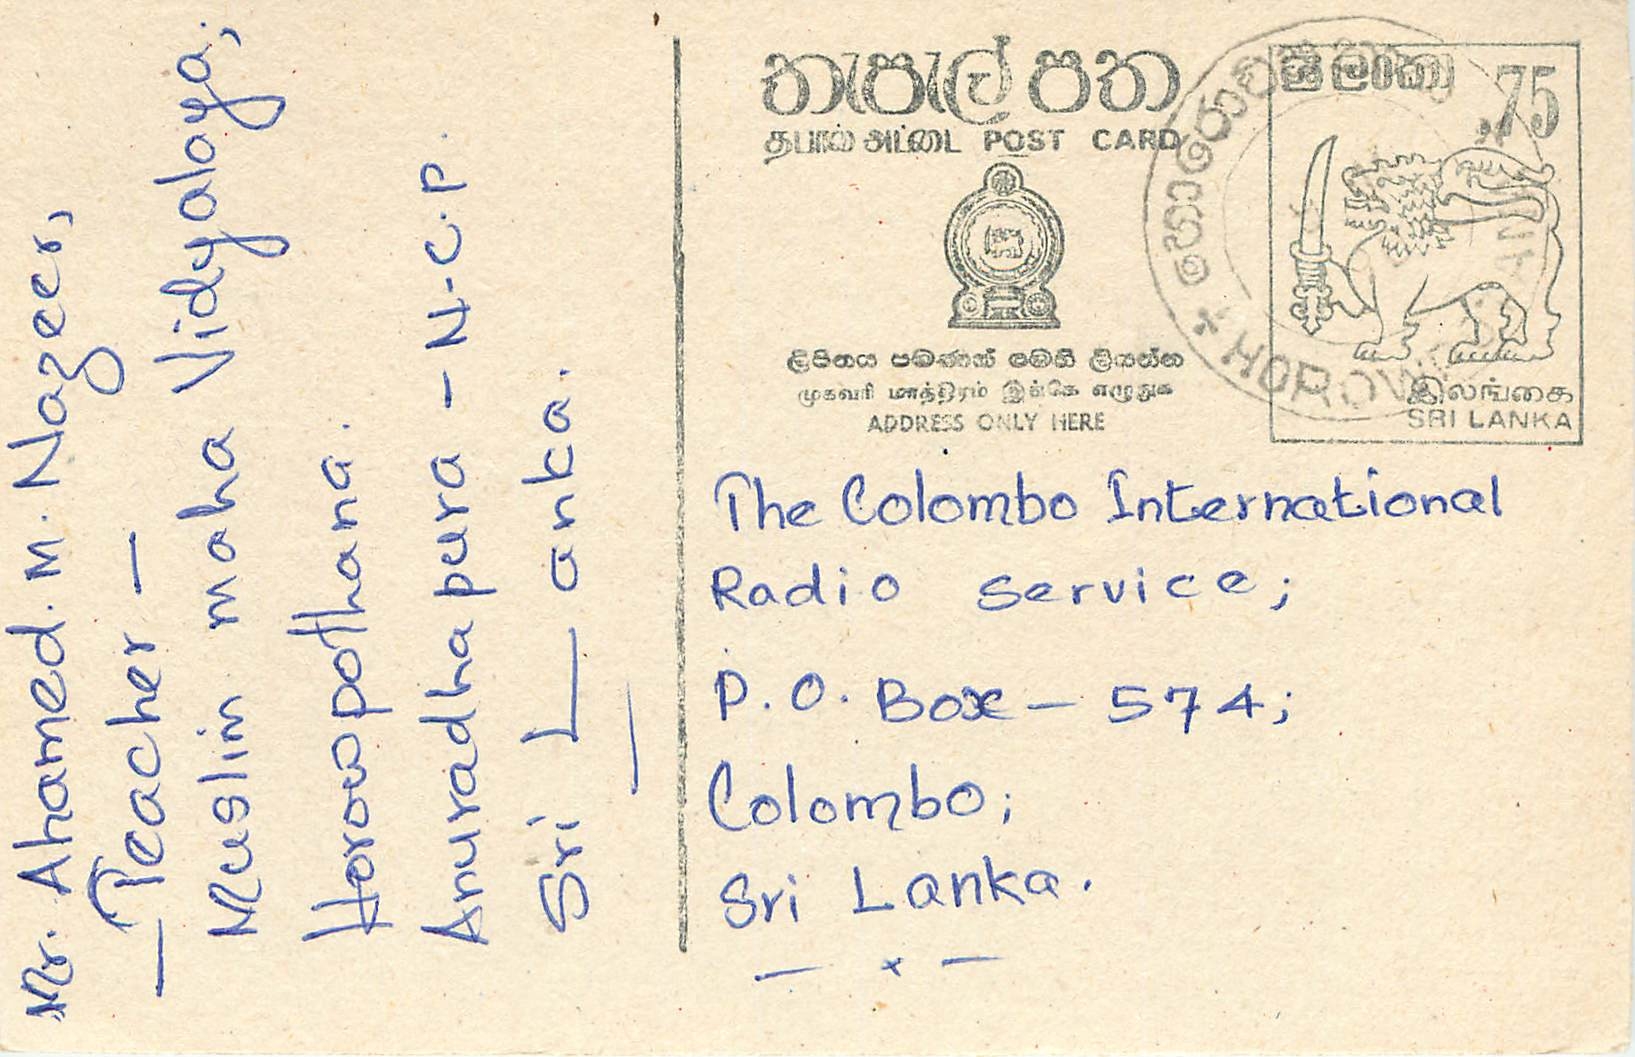 Mr. Ahamed. M. Nazeer,
— Teacher —
Muslim maha Vidyalaya;
Horowpothana.
Anuradhapura - N.C.P.
Sri Lanka.
තැපැල් පත
தபால் அட்டை POST CARD
ලිපිනය පමණක් මෙහි ලියන්න
முகவரி மாத்திரம் இங்கே எழுதுக
ADDRESS ONLY HERE
ශ්‍රී ලංකා
.75
இலங்கை
SRI LANKA
The Colombo International
Radio Service;
P.O. Box - 574;
Colombo;
Sri Lanka.
— x —